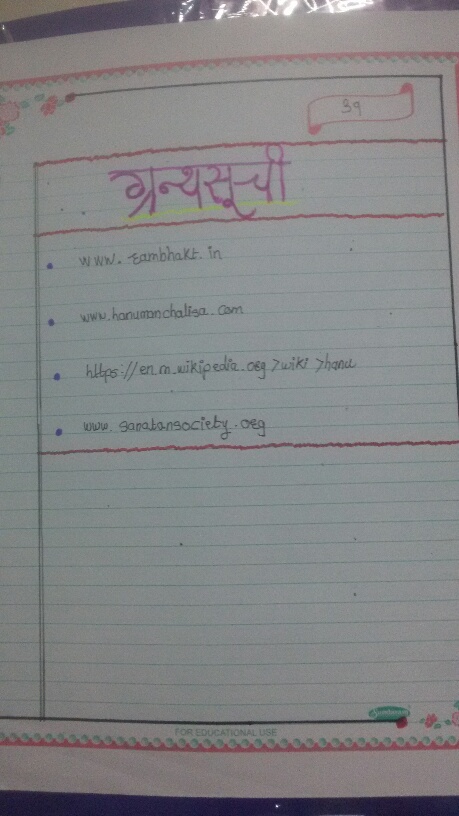 39
ग्रन्थसूची
www.rambhakt.in
www.hanumanchalisa.com
https://en.m.wikipedia.org>wiki>hanu
www.sanatansociety.org
Sundaram
FOR EDUCATIONAL USE